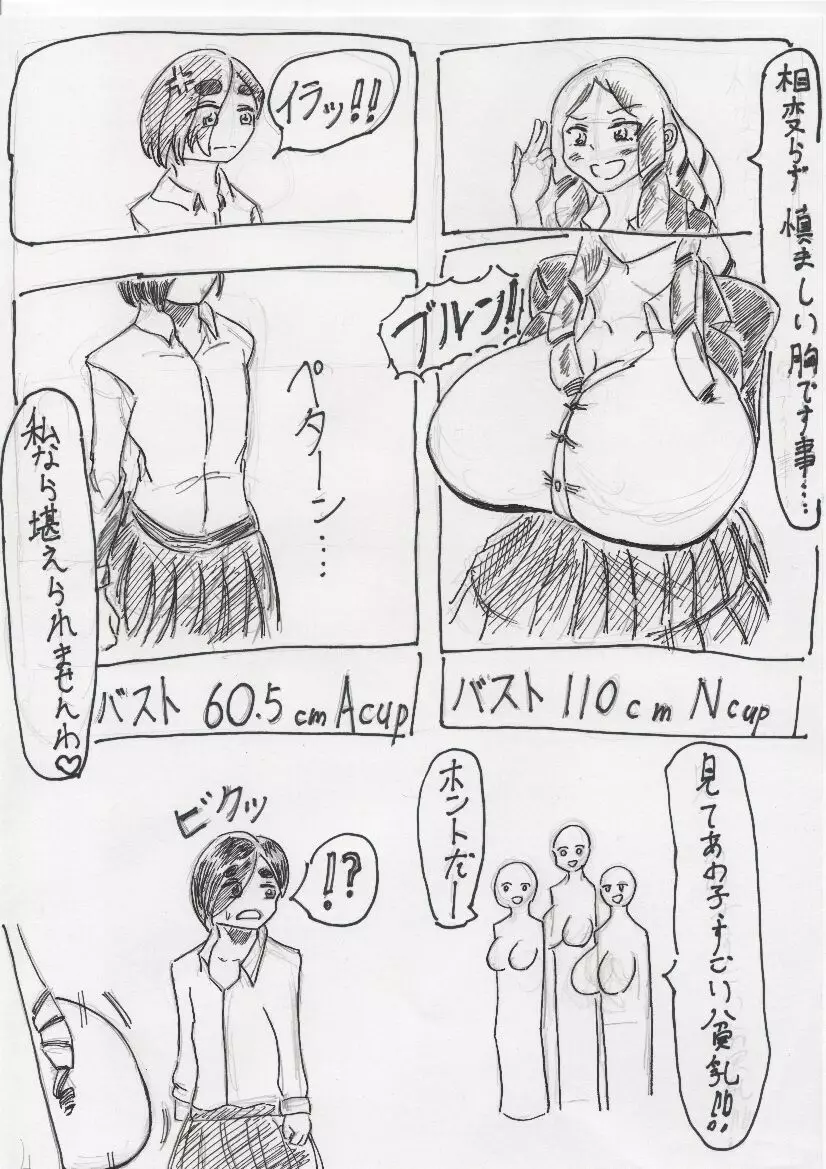 相変らず 慎ましい胸です事…
ブルン!!
バスト 110cm Ncup
イラッ!!
ペターン‥‥
私なら堪えられませんわ♡
バスト 60.5cm Acup
見てあの子、すごい貧乳!!
ホントだー
ビクッ
!?